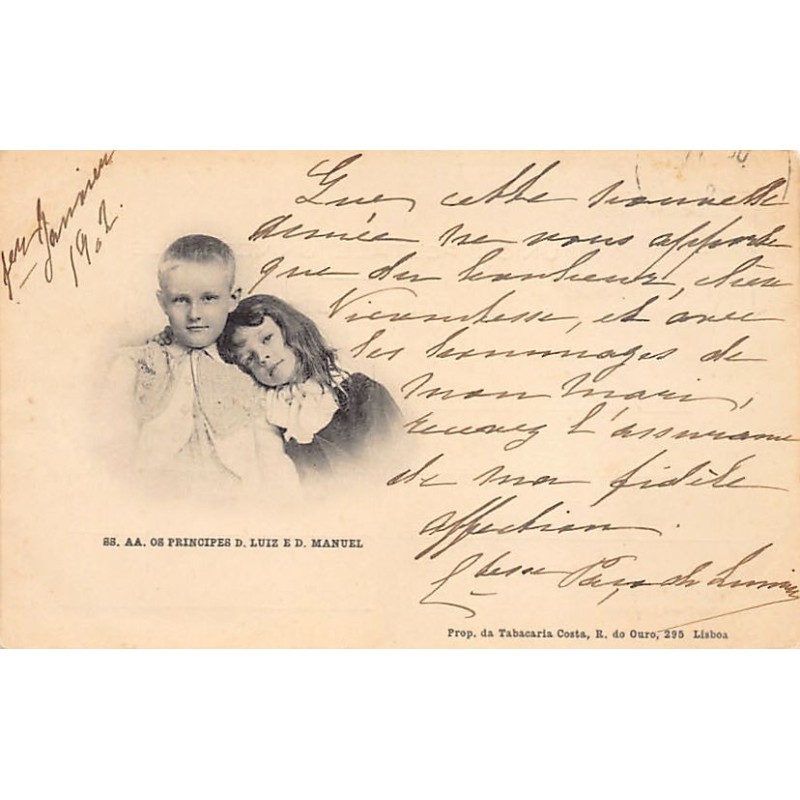 1er Janvier
1902.
Que cette nouvelle
année ne vous apporte
que du bonheur, chère
Vicomtesse, et avec
les hommages de
mon mari,
recevez l'assurance
de ma fidèle
affection.
SS. AA. OS PRINCIPES D. LUIZ E D. MANUEL
Prop. da Tabacaria Costa, R. do Ouro, 295 Lisboa